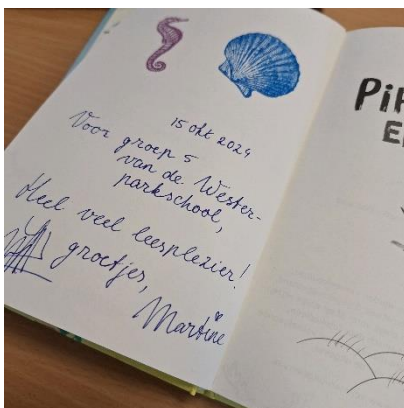 15 okt 2024
Voor groep 5
van de Wester-
parkschool,
Heel veel leesplezier!
groetjes,
Martine